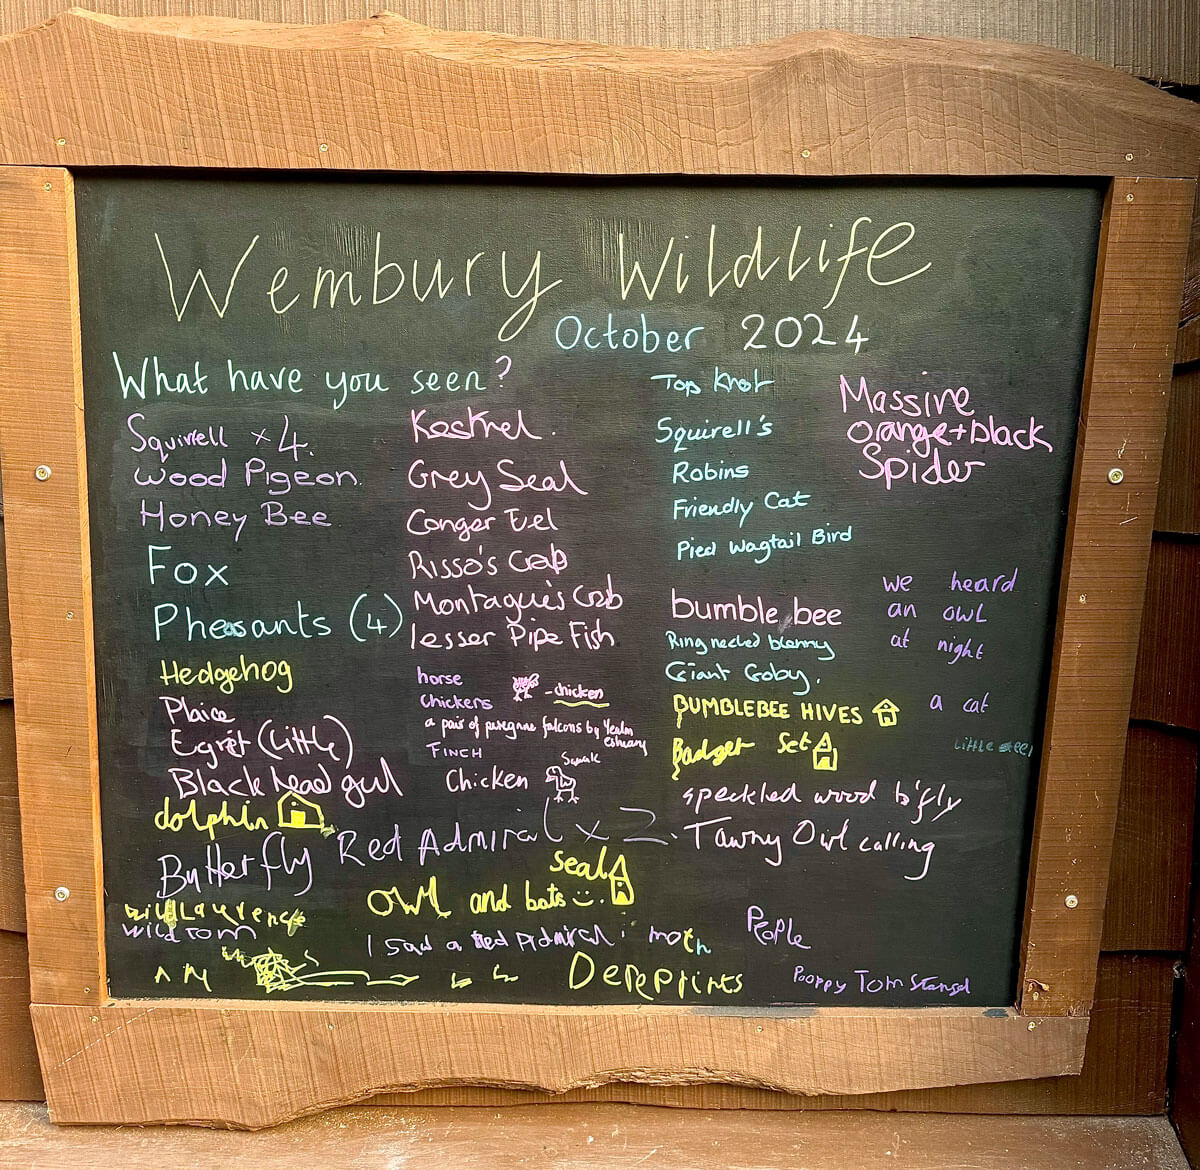 Wembury Wildlife
October 2024
What have you seen?
Squirrell x 4.
Wood Pigeon.
Honey Bee
Fox
Pheasants (4)
Hedgehog
Plaice
Egret (Little)
Black head gul
dolphin
Butterfly Red Admiral x 2.
wild Laurence
wild Tom
Kestrel.
Grey Seal
Conger Eel
Risso's Crab
Montague's Crab
lesser Pipe Fish
horse
Chickers
- chicken
a pair of peregrine falcons by Yealm
estuary
FINCH
Chicken
Sqwak
seal
Owl and bats :).
I saw a Red Admiral moth
Dereprints
Top Knot
Squirell's
Robins
Friendly Cat
Pied Wagtail Bird
bumble bee
Ring necked blenny
Giant Goby.
BUMBLEBEE HIVES
Badger Set
speckled wood b'fly
Tawny Owl calling
People
Pooppy Tom
Massive
orange + black
Spider
we heard
an owl
at night
a cat
Little eel